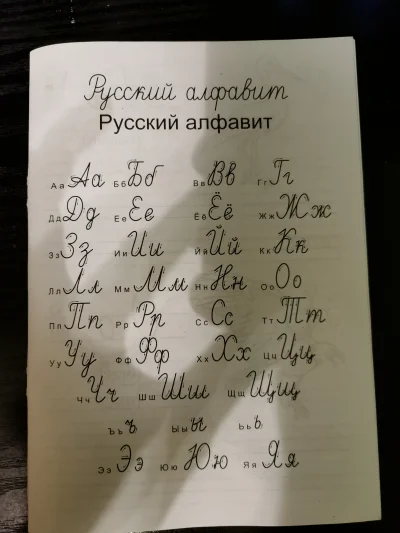 Русский алфавит
Русский алфавит
Аа Аа Бб Бб Вв Вв Гг Гг
Дд Дд Ее Ее Ёё Ёё Жж Жж
Зз Зз Ии Ии Йй Йй Кк Кк
Лл Лл Мм Мм Нн Нн Оо Оо
Пп Пп Рр Рр Сс Сс Тт Тт
Уу Уу Фф Фф Хх Хх Цц Цц
Чч Чч Шш Шш Щщ Щщ
Ъъ ъ Ыы ы Ьь ь
Ээ Ээ Юю Юю Яя Яя